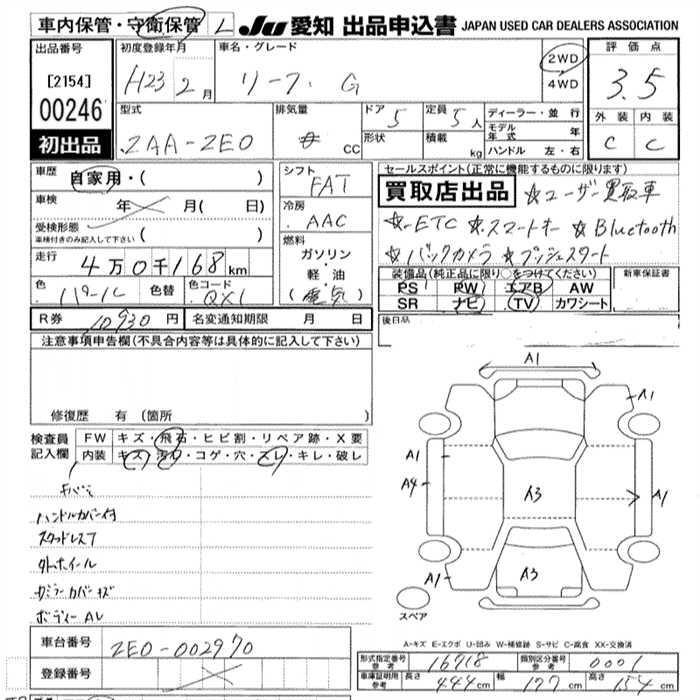 車内保管・守衛保管 L JU 愛知 出品申込書 JAPAN USED CAR DEALERS ASSOCIATION
出品番号 初度登録年月 車名・グレード 評価点
[2154] H23 2月 リーフ・G 2WD 4WD 3.5
00246
型式 排気量 ドア 5 定員 5人 ディーラー・並行 外装 内装
初出品 ZAA-ZE0 cc 形状 積載 kg モデル年式 年 C C
ハンドル 左・右
車歴 自家用・( ) シフト FAT セールスポイント(正常に機能するものに限ります)
車検 年 月(日) 冷房 AAC 買取店出品 ☆ユーザー買取車
受検形態 車検付きのみ記入して下さい ( ) ☆ETC ☆スマートキー ☆Bluetooth
走行 4万0千168km 燃料 ガソリン・軽油・(電気) ☆バックカメラ ☆プッシュスタート
色 パール 色替 色コード QX1 装備品(純正品に限り○をつけてください) 新車保証書
PS PW エアB AW
SR ナビ TV カワシート
R券 10930円 名変通知期限 月 日 後日品
注意事項申告欄(不具合内容等は具体的に記入して下さい)
修復歴 有(箇所
検査員記入欄 FW キズ・飛石・ヒビ割・リペア跡・X要
内装 キズ・汚れ・コゲ・穴・スレ・キレ・破レ
ハンドルカバー付
スタッドレスT
外ホイール
ボディーAU
A1
A1
A1
A4
A3
A1
A1
A3
スペア
A-キズ E-エクボ U-凹み W-補修跡 S-サビ C-腐食 XX-交換済
車台番号 ZE0-002970
登録番号
形式指定番号 参考 16718 類別区分番号 参考 0001
車庫証明用 参考 長さ 444cm 幅 177cm 高さ 154cm